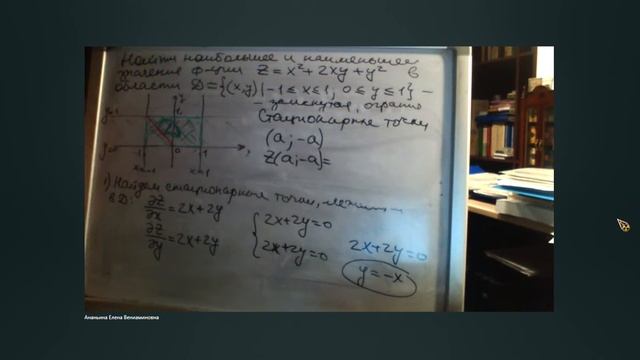 Найти наибольшее и наименьшее
значения ф-ции Z = x² + 2xy + y² в
области D = {(x,y) | -1 ≤ x ≤ 1, 0 ≤ y ≤ 1} –
– замкнутая, огранич
Стационарные точки
(a; -a)
Z(a; -a) =
y=1
y=0
x=-1
x=1
1) Найдем стационарные точки,
в D: ∂z/∂x = 2x+2y
∂z/∂y = 2x+2y
{ 2x+2y=0
2x+2y=0
2x+2y=0
y=-x
Ананьина Елена Вениаминовна